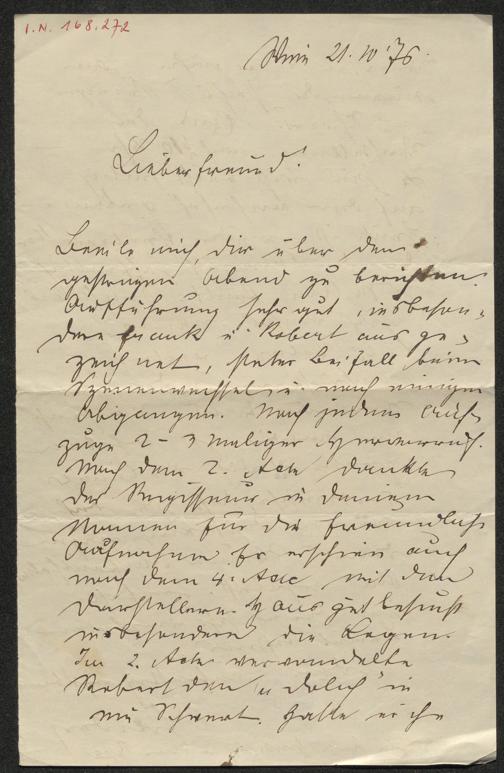 I.N. 168.272
Wien 21. 10 '76.
Lieber Freund!
Beeile mich, dir über den
gestrigen Abend zu berichten.
Aufführung sehr gut, insbeson-
dere Frank u Robert ausge-
zeichnet, steter Beifall beim
Szenenwechsel u. nach einigen
Abgängen. Nach jedem Auf-
zuge 2 - 3 maliger Hervorruf.
Nach dem 2. Akte dankte
der Regisseur in deinem
Namen für die freundliche
Aufnahme Er erschien auch
nach dem 4. Akte mit den
Darstellern. Haus gut besucht
insbesondere die Logen.
Im 2. Akte verwandelte
Robert den „Dolch" in
ein Schwert. Hatte nicht